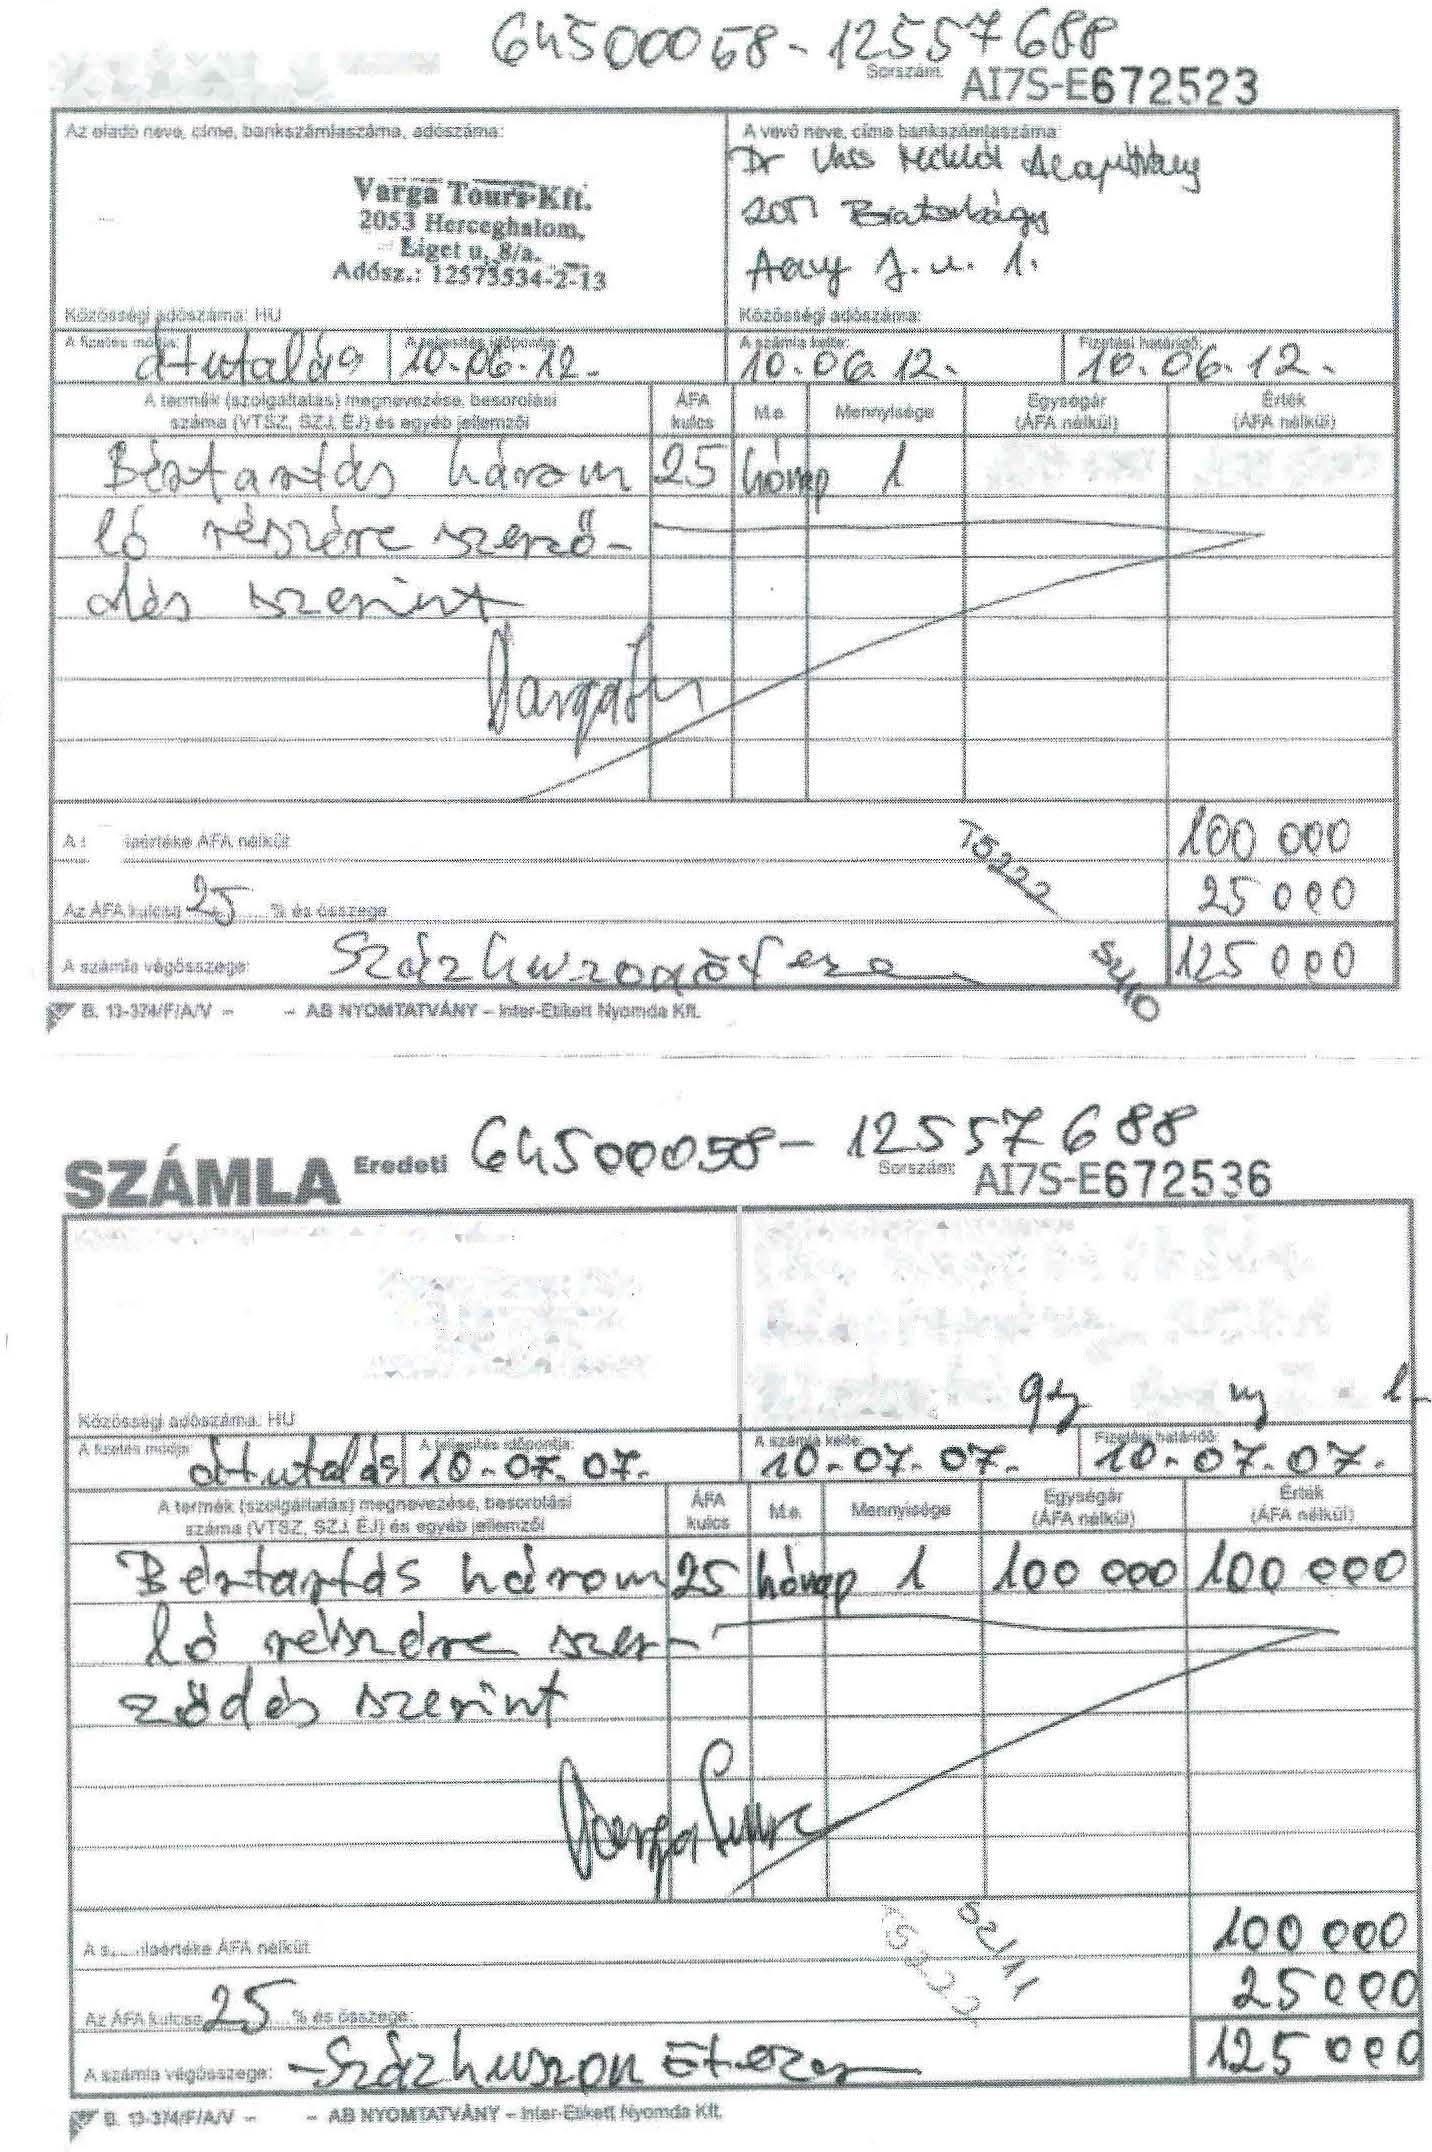 64500058-12557688
Sorszám: AI7S-E672523
Az eladó neve, címe, bankszámlaszáma, adószáma:
A vevő neve, címe bankszámlaszáma:
Varga Tours Kft.
2053 Herceghalom,
Liget u. 8/a.
Adósz.: 12573534-2-13
Dr Vass Miklós Alapítvány
2051 Biatorbágy
J. u. 1.
Közösségi adószáma: HU
Közösségi adószáma:
A fizetés módja: átutalás
A teljesítés időpontja: 10.06.12.
A számla kelte: 10.06.12.
Fizetési határidő: 10.06.12.
A termék (szolgáltatás) megnevezése, besorolási száma (VTSZ, SZJ, ÉJ) és egyéb jellemzői
ÁFA kulcs
M.e.
Mennyisége
Egységár (ÁFA nélkül)
Érték (ÁFA nélkül)
Bértartás három 25 hónap 1
ló részére szerző-
dés szerint
A értéke ÁFA nélkül: 100 000
Az ÁFA kulcsa 25 % és összege: 25 000
T5222
A számla végösszege: Százhuszonötezer 125 000
5210
B. 13-374/F/A/V – – AB NYOMTATVÁNY – Inter-Etikett Nyomda Kft.
64500058-12557688
SZÁMLA Eredeti
Sorszám: AI7S-E672536
Közösségi adószáma: HU
A fizetés módja: átutalás
A teljesítés időpontja: 10.07.07.
A számla kelte: 10.07.07.
Fizetési határidő: 10.07.07.
A termék (szolgáltatás) megnevezése, besorolási száma (VTSZ, SZJ, ÉJ) és egyéb jellemzői
ÁFA kulcs
M.e.
Mennyisége
Egységár (ÁFA nélkül)
Érték (ÁFA nélkül)
Bértartás három 25 hónap 1 100 000 100 000
ló részére szer-
ződés szerint
Varga
5211
A értéke ÁFA nélkül: 100 000
Az ÁFA kulcsa 25 % és összege: 25 000
A számla végösszege: Százhuszonötezer 125 000
B. 13-374/F/A/V – – AB NYOMTATVÁNY – Inter-Etikett Nyomda Kft.